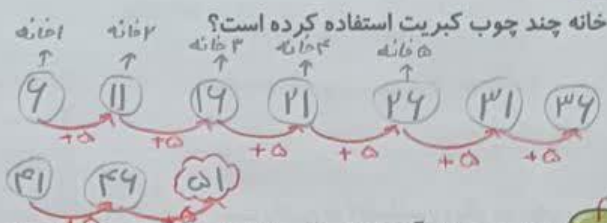 خانه چند چوب کبریت استفاده کرده است؟
۱خانه ۲خانه ۳خانه ۴خانه ۵خانه
۶ ۱۱ ۱۶ ۲۱ ۲۶ ۳۱ ۳۶
+۵ +۵ +۵ +۵ +۵ +۵
۴۱ ۴۶ ۵۱
+۵ +۵